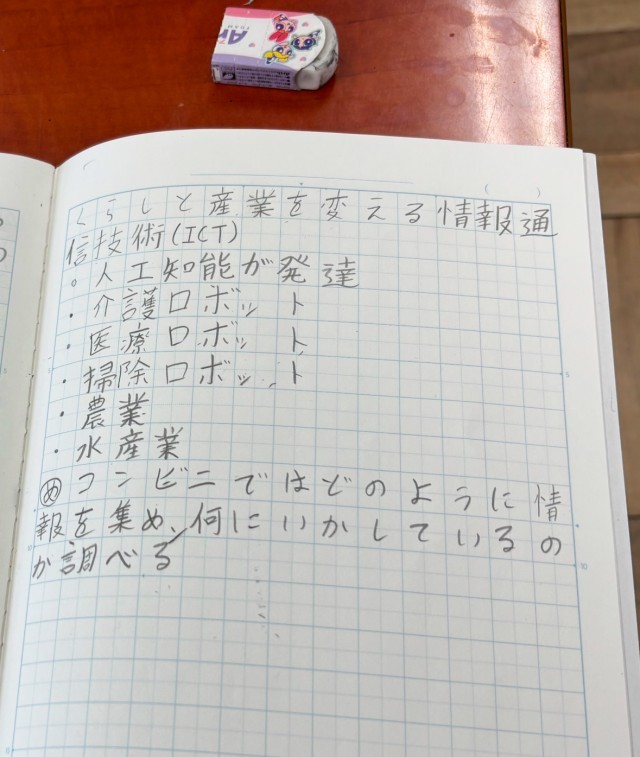 くらしと産業を変える情報通
信技術(ICT)
○人工知能が発達
・介護ロボット
・医療ロボット
・掃除ロボット
・農業
・水産業
め コンビニではどのように情
報を集め、何にいかしているの
か調べる